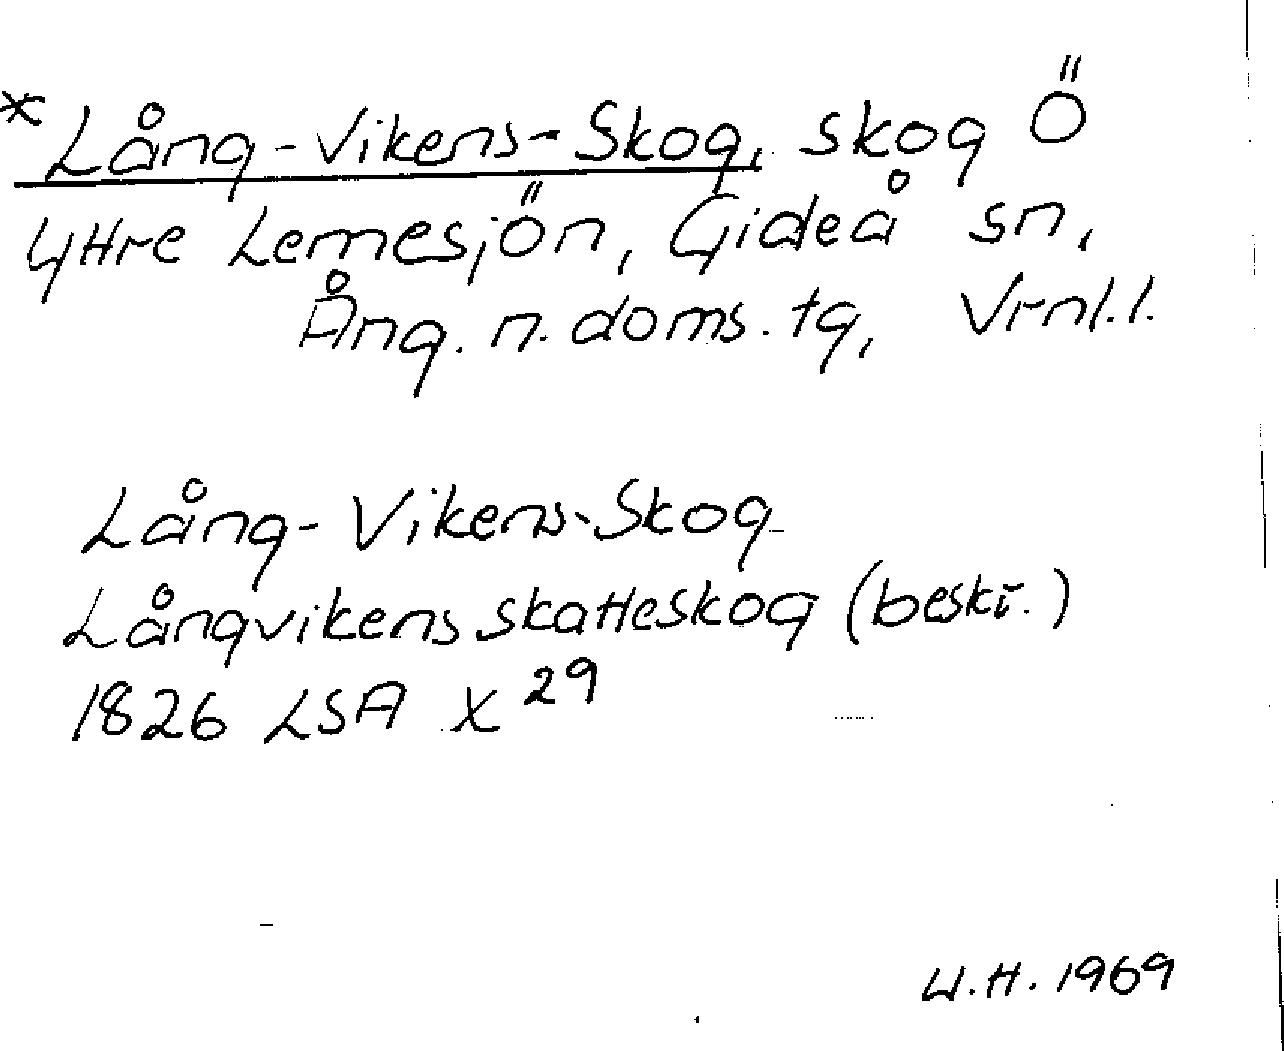 *Lång-Vikens-Skog, skog Ö
Yttre Lemesjön, Gideå sn,
Ång. n. doms. tg, Vrnl.l.
Lång-Vikens-Skog
Långvikens skatteskog (beskr.)
1826 LSA X 29
U.H. 1969